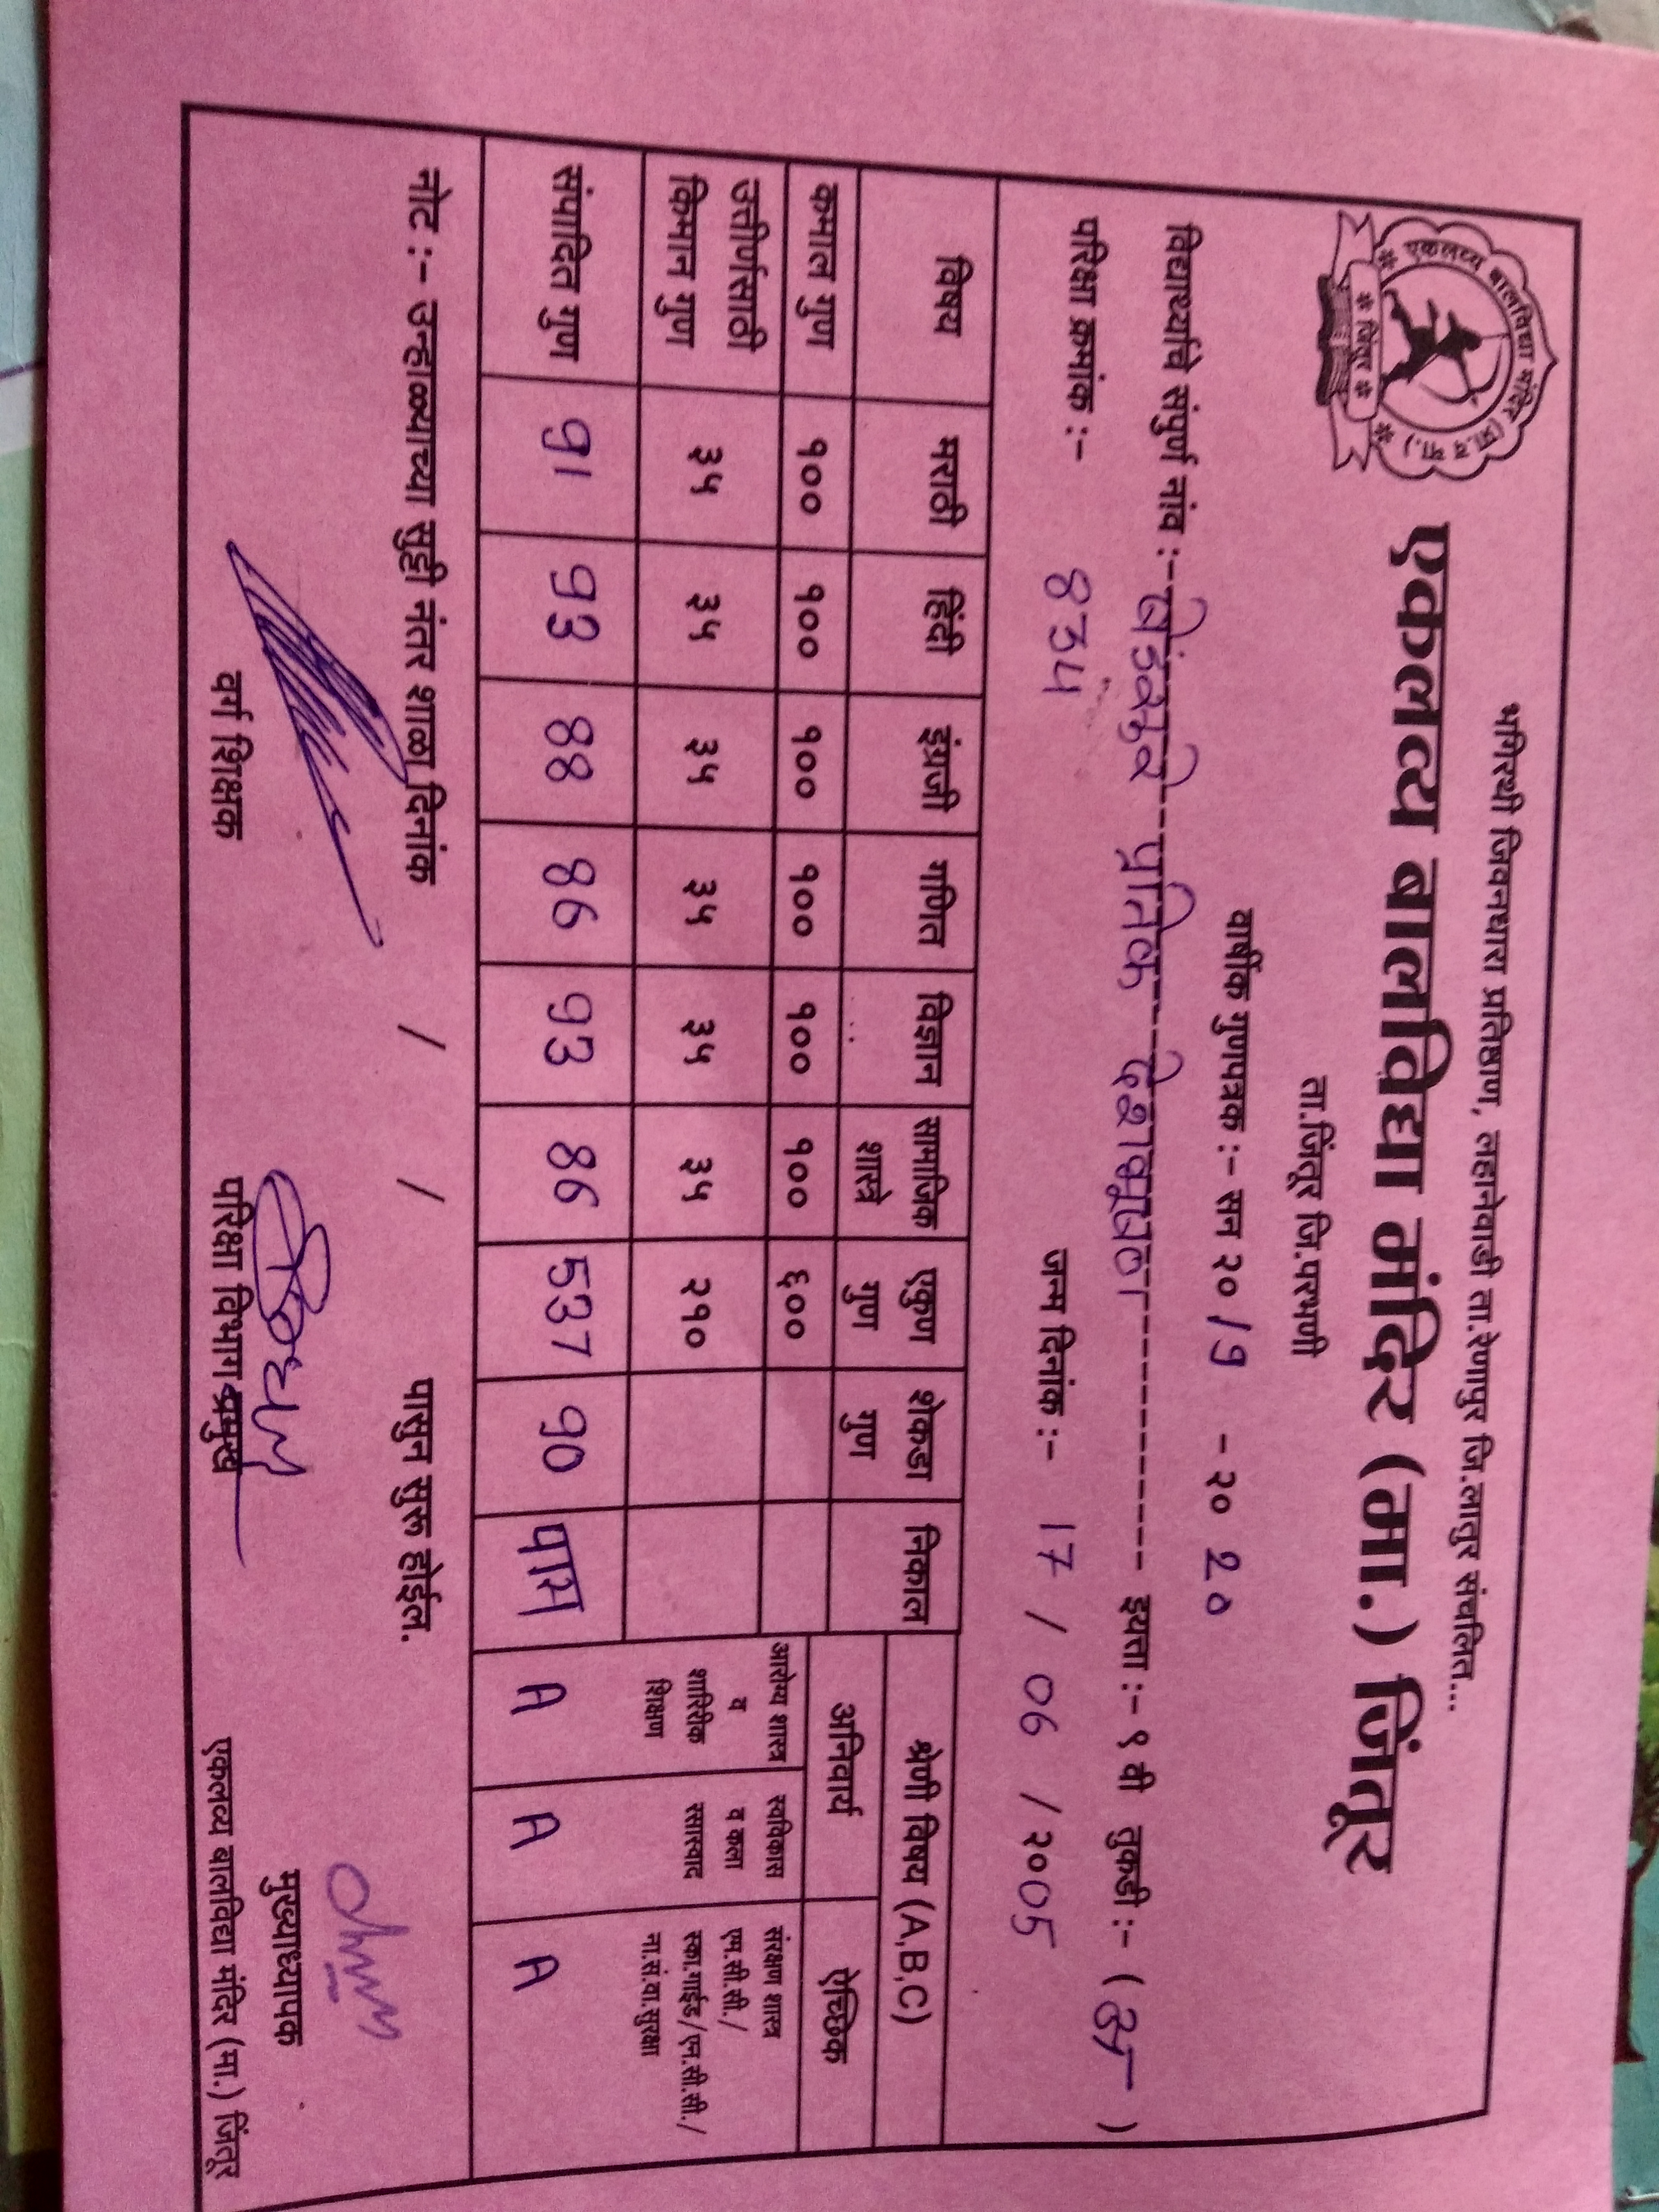 एकलव्य बालविद्या मंदिर (प्रा.व मा.)
* जिंतूर *
भगिरथी जिवनधारा प्रतिष्ठाण, लहानेवाडी ता.रेणापुर जि.लातुर संचलित...
एकलव्य बालविद्या मंदिर (मा.) जिंतूर
ता.जिंतूर जि.परभणी
वार्षीक गुणपत्रक :- सन २० 19 - २० 20
विद्यार्थ्याचे संपुर्ण नांव :- प्रतिक इयत्ता :- ९ वी तुकडी :- ( अ )
परिक्षा क्रमांक :- 8934 जन्म दिनांक :- 17 / 06 / 2005
विषय मराठी हिंदी इंग्रजी गणित विज्ञान सामाजिक शास्त्रे एकुण गुण शेकडा गुण निकाल श्रेणी विषय (A,B,C)
अनिवार्य ऐच्छिक
कमाल गुण १०० १०० १०० १०० १०० १०० ६००
आरोग्य शास्त्र व शारिरीक शिक्षण स्वविकास व कला रसास्वाद संरक्षण शास्त्र एम.सी.सी./ स्का.गाईड/एन.सी.सी./ ना.सं.वा.सुरक्षा
उत्तीर्णसाठी किमान गुण ३५ ३५ ३५ ३५ ३५ ३५ २१०
संपादित गुण 91 93 88 86 93 86 537 90 पास A A A
नोट :- उन्हाळ्याच्या सुट्टी नंतर शाळा दिनांक / / पासुन सुरू होईल.
वर्ग शिक्षक परिक्षा विभाग प्रमुख मुख्याध्यापक
एकलव्य बालविद्या मंदिर (मा.) जिंतूर